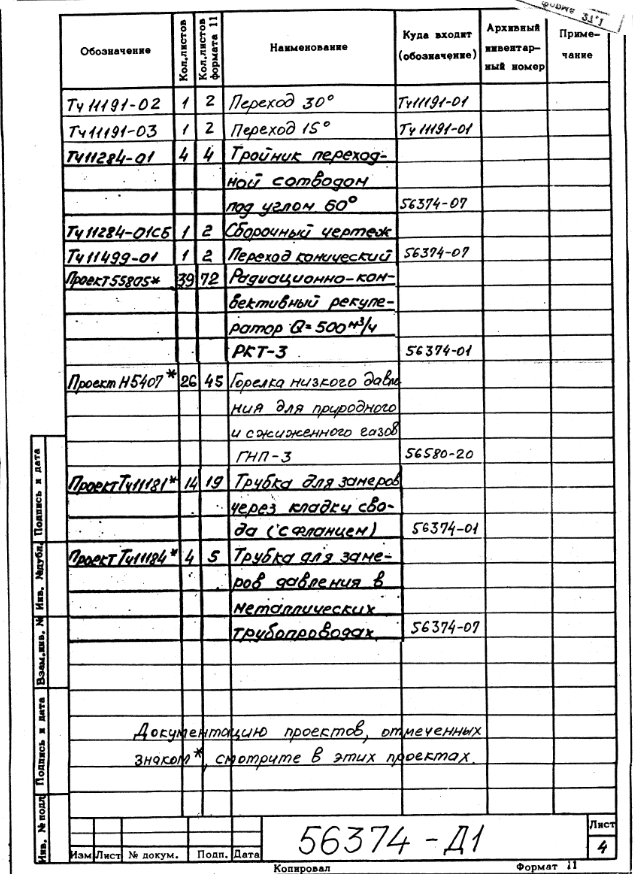 Форма 31"1
Обозначение Кол.листов Кол.листов формата 11 Наименование Куда входит (обозначение) Архивный инвентарный номер Примечание
Тч11191-02 1 2 Переход 30° Тч11191-01
Тч11191-03 1 2 Переход 15° Тч11191-01
Тч11284-01 4 4 Тройник переход-
ной с отводом
под углом 60° 56374-07
Тч11284-01СБ 1 2 Сборочный чертеж
Тч11499-01 1 2 Переход конический 56374-07
Проект 55805* 39 72 Радиационно-кон-
вективный рекупе-
ратор Q=500м³/ч
РКТ-3 56374-01
Проект Н5407* 26 45 Горелка низкого давле
ния для природного
и сжиженного газов
ГНП-3 56580-20
Проект Тч11181* 14 19 Трубка для замеров
через кладку сво-
да (с фланцем) 56374-01
Проект Тч11184* 4 5 Трубка для заме-
ров давления в
металлических
трубопроводах 56374-07
Документацию проектов, отмеченных
знаком*, смотрите в этих проектах.
Инв. № подл Подпись и дата Взам.инв. № Инв. №дубл. Подпись и дата
56374-Д1
Лист
4
Изм Лист № докум. Подп. Дата
Копировал Формат 11